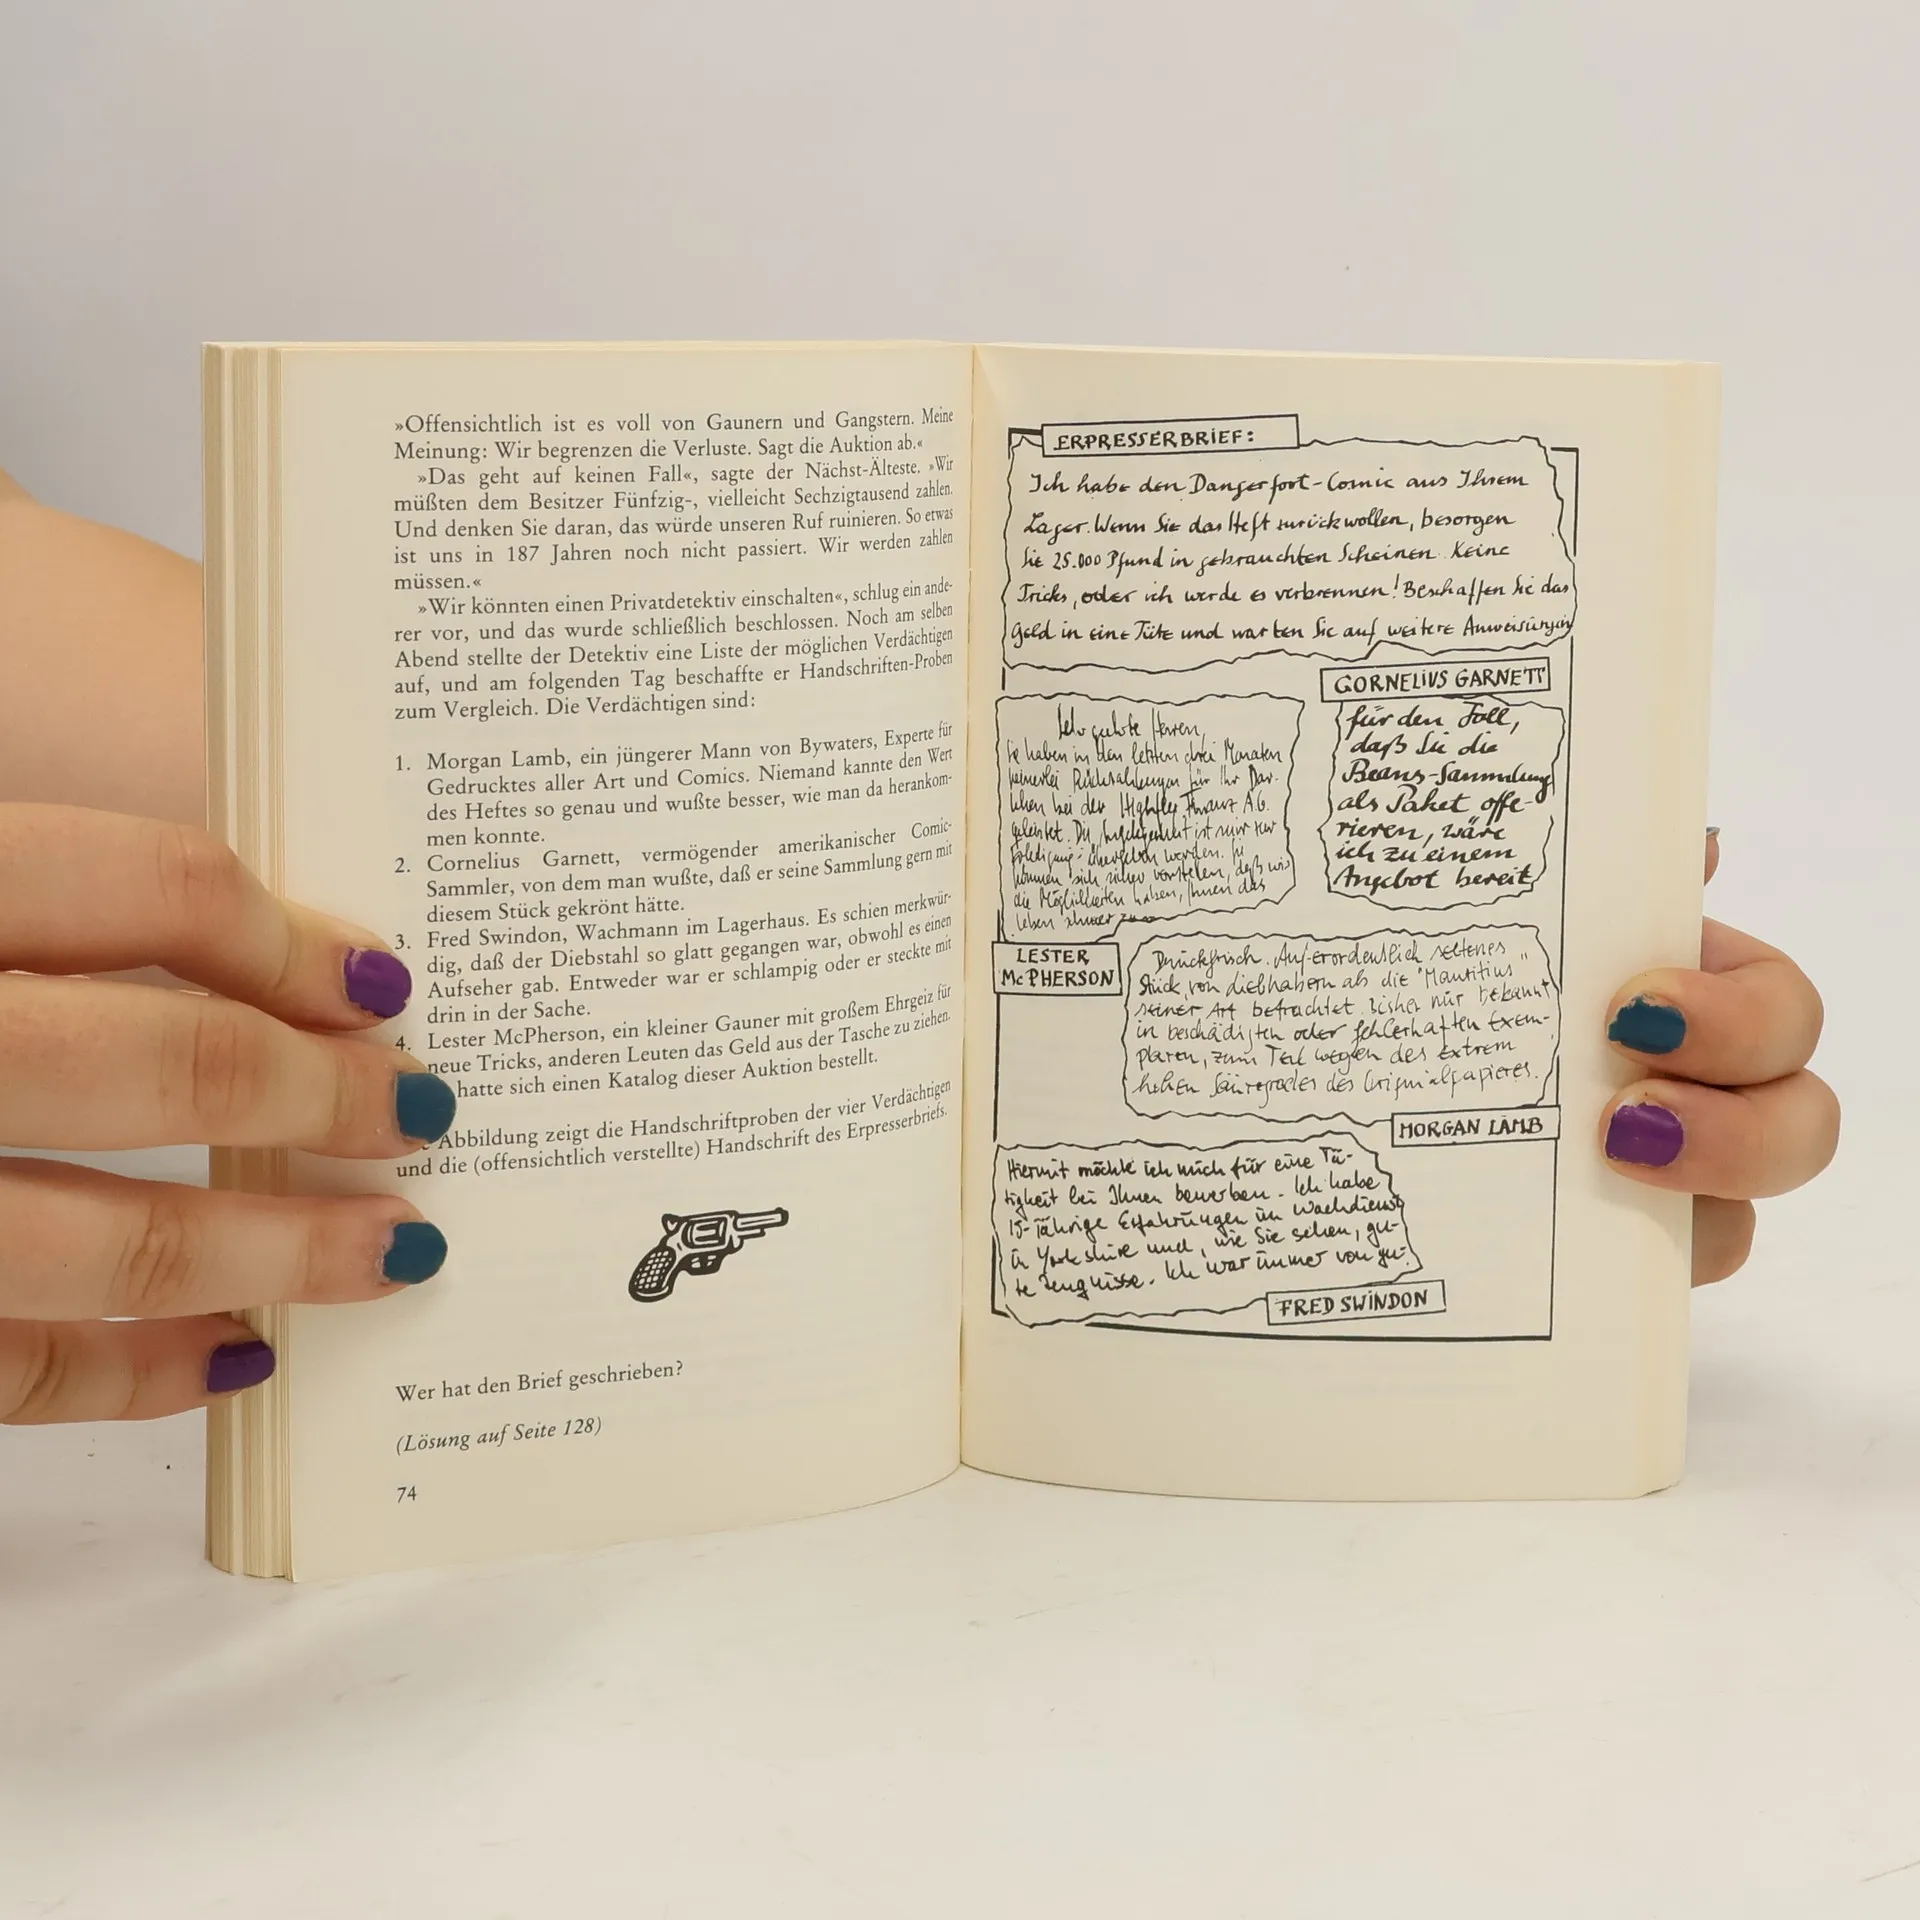 »Offensichtlich ist es voll von Gaunern und Gangstern. Meine
Meinung: Wir begrenzen die Verluste. Sagt die Auktion ab.«
»Das geht auf keinen Fall«, sagte der Nächst-Älteste. »Wir
müßten dem Besitzer Fünfzig-, vielleicht Sechzigtausend zahlen.
Und denken Sie daran, das würde unseren Ruf ruinieren. So etwas
ist uns in 187 Jahren noch nicht passiert. Wir werden zahlen
müssen.«
»Wir könnten einen Privatdetektiv einschalten«, schlug ein ande-
rer vor, und das wurde schließlich beschlossen. Noch am selben
Abend stellte der Detektiv eine Liste der möglichen Verdächtigen
auf, und am folgenden Tag beschaffte er Handschriften-Proben
zum Vergleich. Die Verdächtigen sind:
1. Morgan Lamb, ein jüngerer Mann von Bywaters, Experte für
Gedrucktes aller Art und Comics. Niemand kannte den Wert
des Heftes so genau und wußte besser, wie man da herankom-
men konnte.
2. Cornelius Garnett, vermögender amerikanischer Comic-
Sammler, von dem man wußte, daß er seine Sammlung gern mit
diesem Stück gekrönt hätte.
3. Fred Swindon, Wachmann im Lagerhaus. Es schien merkwür-
dig, daß der Diebstahl so glatt gegangen war, obwohl es einen
Aufseher gab. Entweder war er schlampig oder er steckte mit
drin in der Sache.
4. Lester McPherson, ein kleiner Gauner mit großem Ehrgeiz für
neue Tricks, anderen Leuten das Geld aus der Tasche zu ziehen.
hatte sich einen Katalog dieser Auktion bestellt.
Abbildung zeigt die Handschriftproben der vier Verdächtigen
und die (offensichtlich verstellte) Handschrift des Erpresserbriefs.
Wer hat den Brief geschrieben?
(Lösung auf Seite 128)
74
ERPRESSERBRIEF:
Ich habe den Dangerfort-Comic aus Ihrem
Lager. Wenn Sie das Heft zurück wollen, besorgen
Sie 25.000 Pfund in gebrauchten Scheinen. Keine
Tricks, oder ich werde es verbrennen! Beschaffen Sie das
Geld in eine Tüte und warten Sie auf weitere Anweisungen
CORNELIUS GARNETT
für den Fall,
daß Sie die
Beans-Sammlung
als Paket offe-
rieren, wäre
ich zu einem
Angebot bereit
Sehr geehrte Herren,
Sie haben in den letzten drei Monaten
keinerlei Rückzahlungen für Ihr Dar-
lehen bei der Finanz A.G.
geleistet. Die Angelegenheit ist mir zur
Erledigung übergeben worden. Sie
können sich sicher vorstellen, daß wir
die Möglichkeiten haben, Ihnen das
Leben schwer zu
LESTER
McPHERSON
Druckfrisch. Außerordentlich seltenes
Stück, von Liebhabern als die "Mauritius"
seiner Art betrachtet. Bisher nur bekannt
in beschädigten oder fehlerhaften Exem-
plaren, zum Teil wegen des extrem
hohen Säuregrades des Originalpapieres.
MORGAN LAMB
Hiermit möchte ich mich für eine Tä-
tigkeit bei Ihnen bewerben. Ich habe
15-Jährige Erfahrungen im Wachdienst
in Yorkshire und, wie Sie sehen, gu-
te Zeugnisse. Ich war immer von gu-
FRED SWINDON